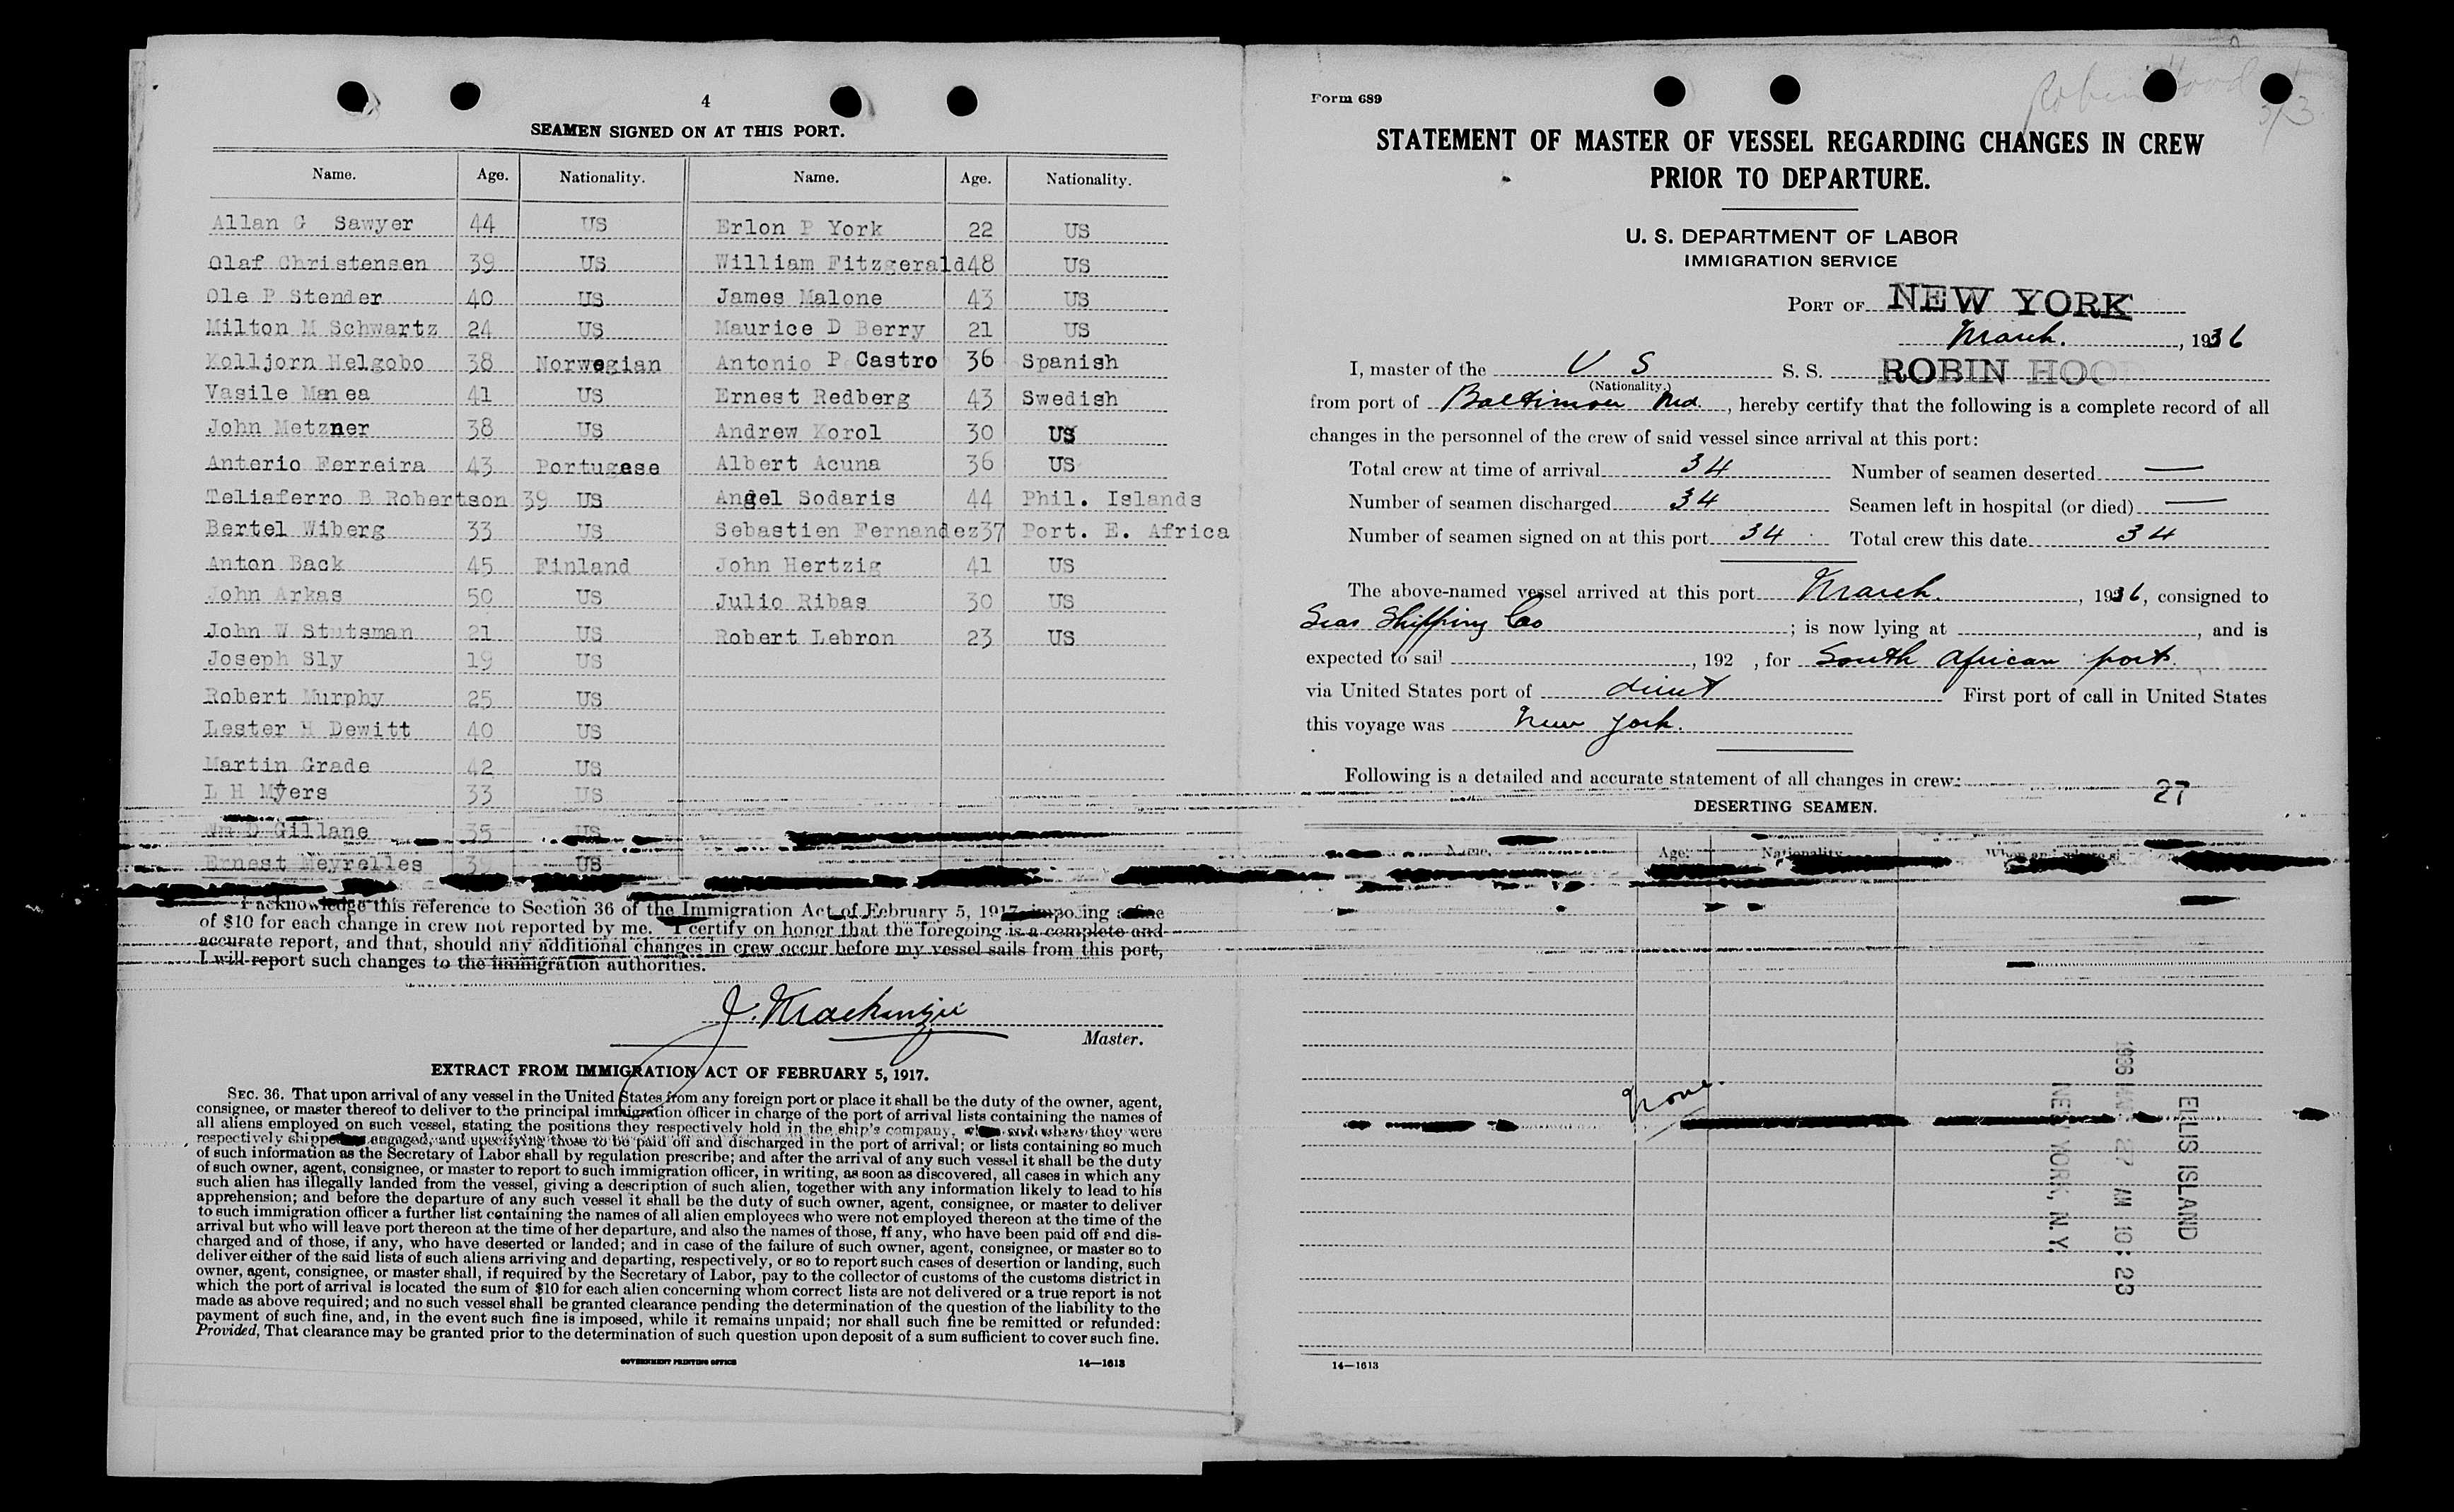 4
SEAMEN SIGNED ON AT THIS PORT.
Name. Age. Nationality. Name. Age. Nationality.
Allan G Sawyer 44 US Erlon P York 22 US
Olaf Christensen 39 US William Fitzgerald 48 US
Ole P Stender 40 US James Malone 43 US
Milton M Schwartz 24 US Maurice D Berry 21 US
Kolljorn Helgobo 38 Norwegian Antonio P Castro 36 Spanish
Vasile Manea 41 US Ernest Redberg 43 Swedish
John Metzner 38 US Andrew Korol 30 US
Anterio Ferreira 43 Portugese Albert Acuna 36 US
Teliaferro B Robertson 39 US Angel Sodaris 44 Phil. Islands
Bertel Wiberg 33 US Sebastien Fernandez 37 Port. E. Africa
Anton Back 45 Finland John Hertzig 41 US
John Arkas 50 US Julio Ribas 30 US
John W Stutsman 21 US Robert Lebron 23 US
Joseph Sly 19 US
Robert Murphy 25 US
Lester H Dewitt 40 US
Martin Grade 42 US
L H Myers 33 US
Wm D Gillane 35 US
Ernest Meyrelles 39 US
I acknowledge this reference to Section 36 of the Immigration Act of February 5, 1917, imposing a fine
of $10 for each change in crew not reported by me. I certify on honor that the foregoing is a complete and
accurate report, and that, should any additional changes in crew occur before my vessel sails from this port,
I will report such changes to the immigration authorities.
J. Mackenzie
Master.
EXTRACT FROM IMMIGRATION ACT OF FEBRUARY 5, 1917.
SEC. 36. That upon arrival of any vessel in the United States from any foreign port or place it shall be the duty of the owner, agent,
consignee, or master thereof to deliver to the principal immigration officer in charge of the port of arrival lists containing the names of
all aliens employed on such vessel, stating the positions they respectively hold in the ship's company, when and where they were
respectively shipped or engaged, and specifying those to be paid off and discharged in the port of arrival; or lists containing so much
of such information as the Secretary of Labor shall by regulation prescribe; and after the arrival of any such vessel it shall be the duty
of such owner, agent, consignee, or master to report to such immigration officer, in writing, as soon as discovered, all cases in which any
such alien has illegally landed from the vessel, giving a description of such alien, together with any information likely to lead to his
apprehension; and before the departure of any such vessel it shall be the duty of such owner, agent, consignee, or master to deliver
to such immigration officer a further list containing the names of all alien employees who were not employed thereon at the time of the
arrival but who will leave port thereon at the time of her departure, and also the names of those, if any, who have been paid off and dis-
charged and of those, if any, who have deserted or landed; and in case of the failure of such owner, agent, consignee, or master so to
deliver either of the said lists of such aliens arriving and departing, respectively, or so to report such cases of desertion or landing, such
owner, agent, consignee, or master shall, if required by the Secretary of Labor, pay to the collector of customs of the customs district in
which the port of arrival is located the sum of $10 for each alien concerning whom correct lists are not delivered or a true report is not
made as above required; and no such vessel shall be granted clearance pending the determination of the question of the liability to the
payment of such fine, and, in the event such fine is imposed, while it remains unpaid; nor shall such fine be remitted or refunded:
Provided, That clearance may be granted prior to the determination of such question upon deposit of a sum sufficient to cover such fine.
GOVERNMENT PRINTING OFFICE 14—1613
Form 689
Robin Hood
3/3
STATEMENT OF MASTER OF VESSEL REGARDING CHANGES IN CREW
PRIOR TO DEPARTURE.
U. S. DEPARTMENT OF LABOR
IMMIGRATION SERVICE
PORT OF NEW YORK
March , 1936
I, master of the U S S. S. ROBIN HOOD
(Nationality.)
from port of Baltimore Md. , hereby certify that the following is a complete record of all
changes in the personnel of the crew of said vessel since arrival at this port:
Total crew at time of arrival 34 Number of seamen deserted —
Number of seamen discharged 34 Seamen left in hospital (or died) —
Number of seamen signed on at this port 34 Total crew this date 34
The above-named vessel arrived at this port March , 1936, consigned to
Seas Shipping Co ; is now lying at , and is
expected to sail , 192 , for South African ports
via United States port of direct First port of call in United States
this voyage was New York.
Following is a detailed and accurate statement of all changes in crew:
27
DESERTING SEAMEN.
Name. Age. Nationality.
None.
ELLIS ISLAND
1936 MAR 27 AM 10:28
NEW YORK, N.Y.
14—1613